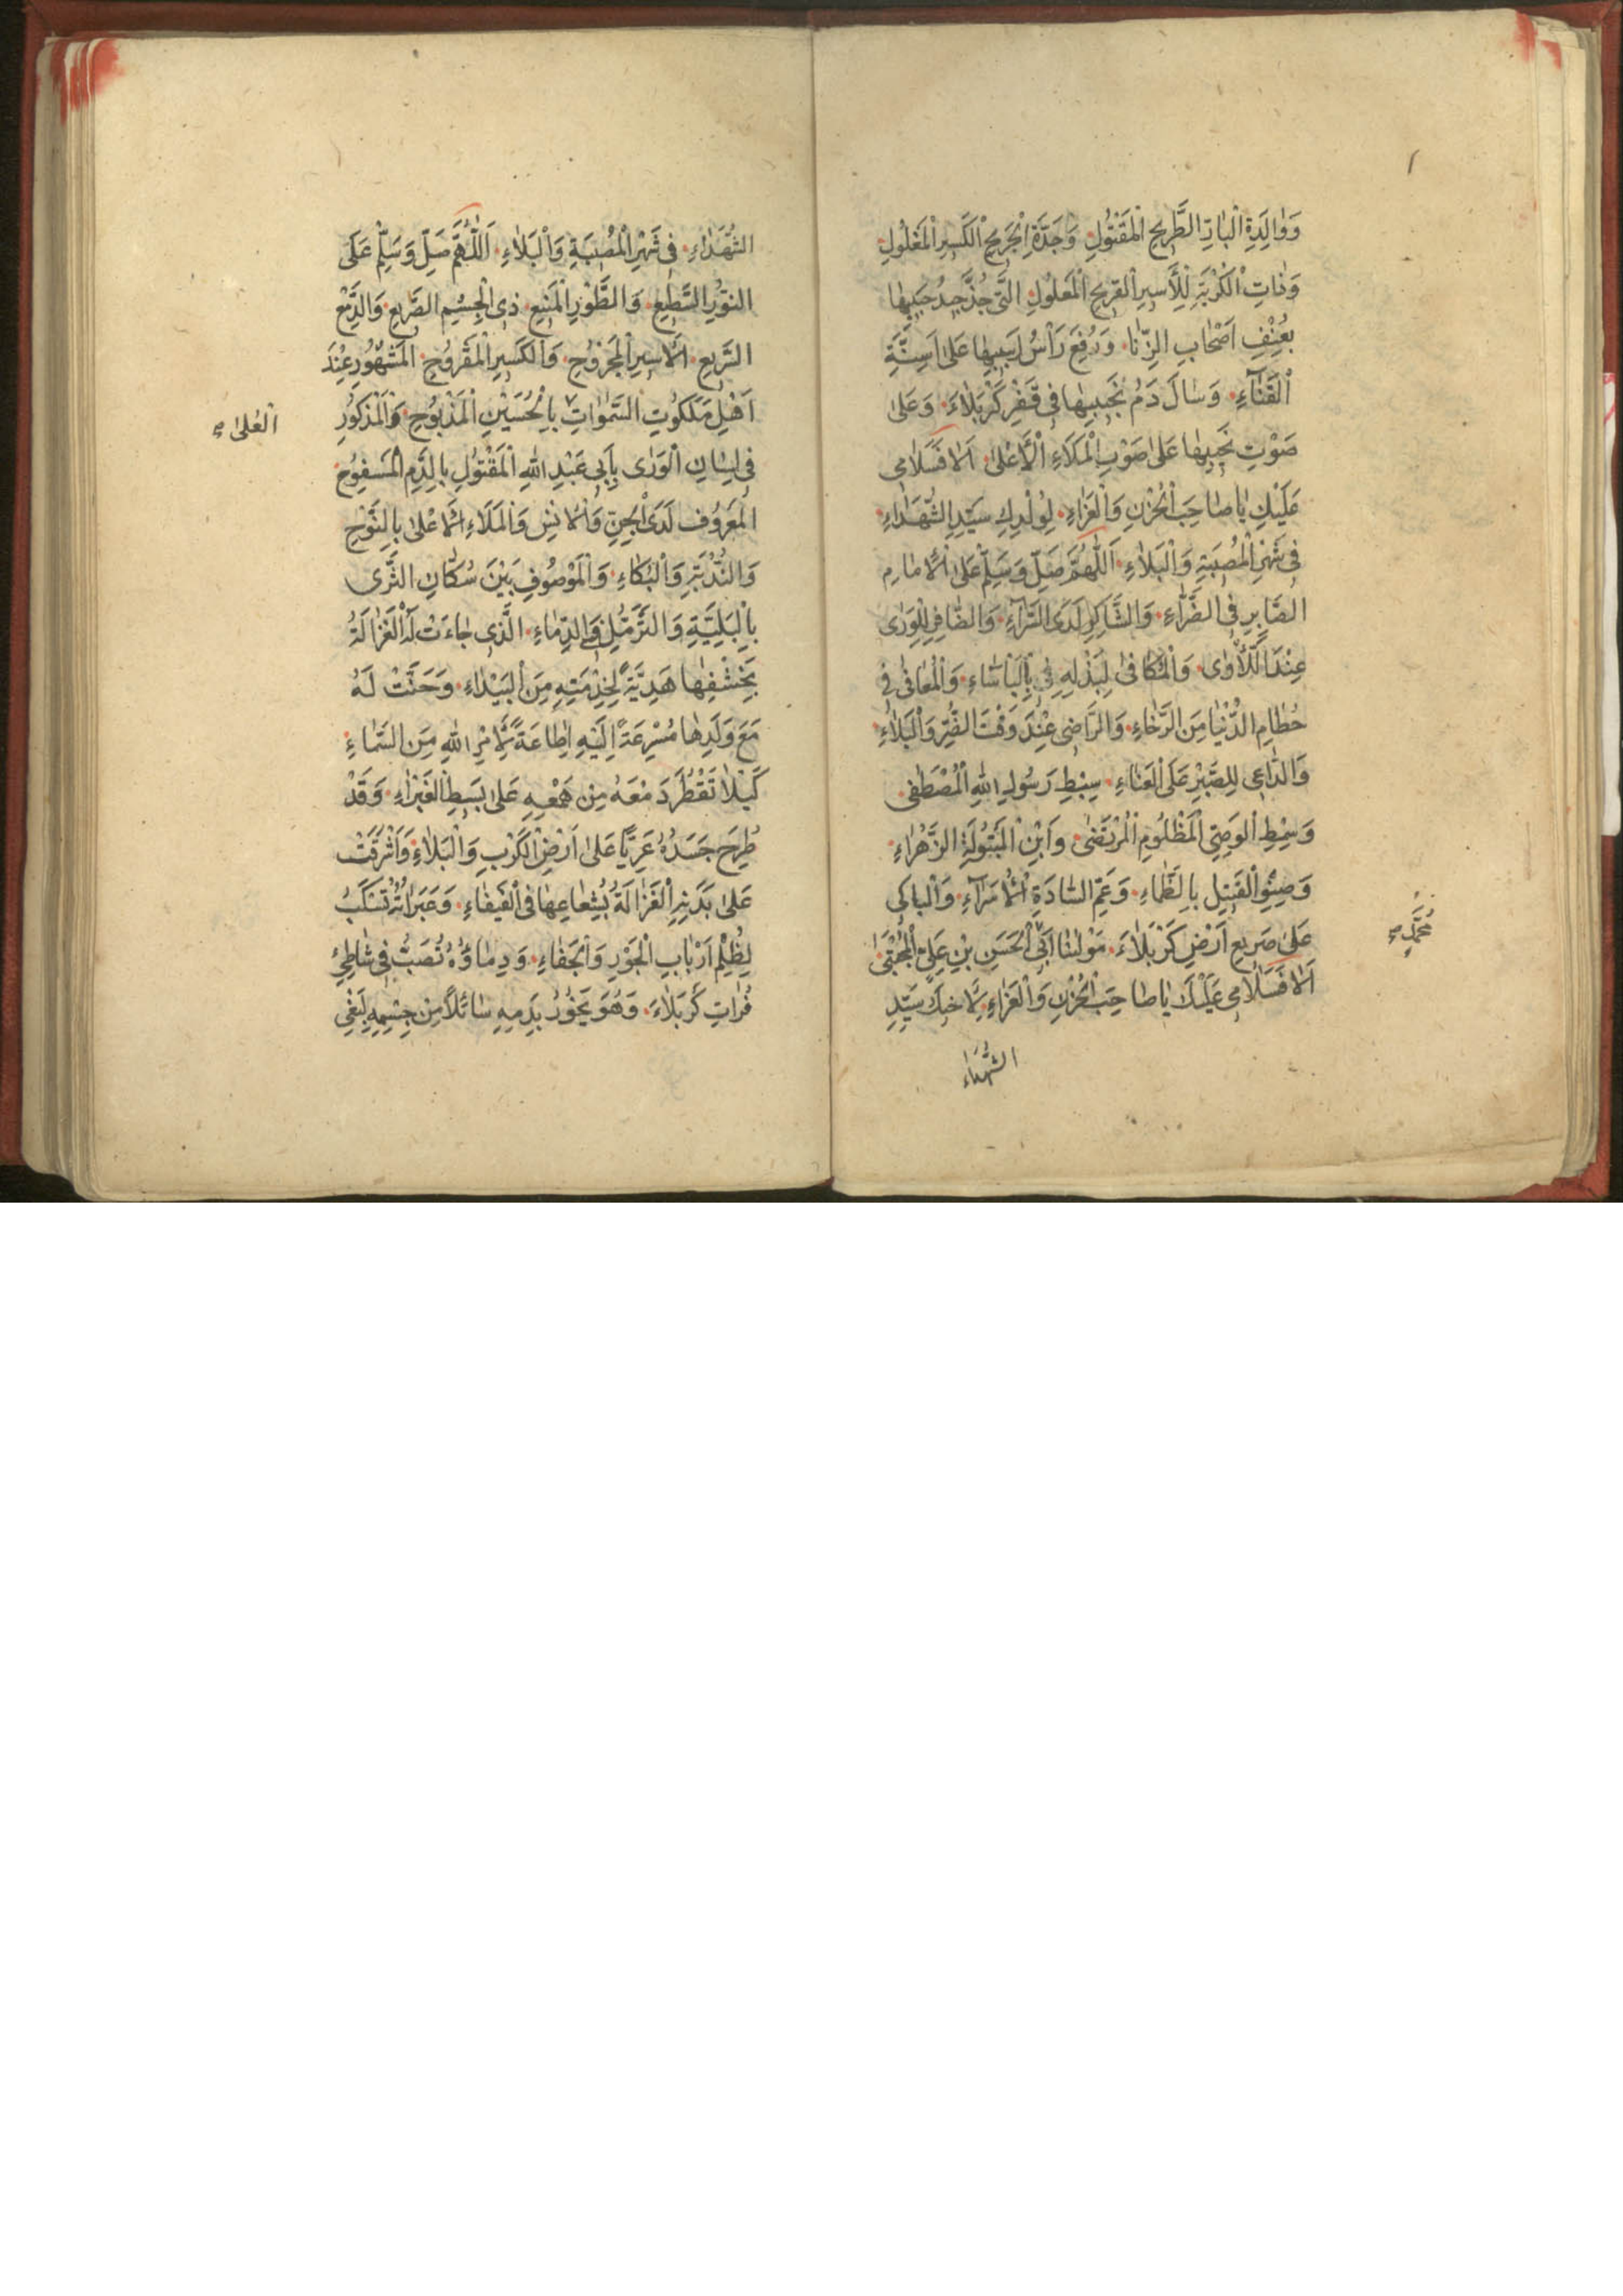 وَوٰالِدَةِ الْبٰاتِّ الطَّرِيحِ الْمَقْتُولِ وَجَدَّةِ الْجَرِيحِ الْكَسِيرِ الْمَغْلُولِ
وَذٰاتِ الْكُرْبَةِ لِلْأَسِيرِ الْقَرِيحِ الْمَعْلُولِ الَّتِي جُذَّ جِيدُ حَبِيبِهٰا
بِعُنْفِ اَصْحٰابِ الزِّنٰا وَرُفِعَ رَأْسُ لَبِيبِهٰا عَلىٰ اَسِنَّةِ
الْقَنٰآءِ وَسٰالَ دَمُ نَجِيبِهٰا فِي قَفْرِ كَرْبَلٰاءَ وَعَلىٰ
صَوْتُ نَحِيبِهٰا عَلىٰ صَوْتِ الْمَلَاءِ الْأَعْلىٰ اَلٰا فَسَلٰامِي
عَلَيْكِ يٰا صٰاحِبَ الْحُزْنِ وَالْعَزٰاءِ لِوَلَدِكِ سَيِّدِ الشُّهَدٰاءِ
فِي شَهْرِ الْمُصِيبَةِ وَالْبَلٰاءِ اَللّٰهُمَّ صَلِّ وَسَلِّمْ عَلَى الْاِمٰامِ
الصّٰابِرِ فِي الضَّرّٰاءِ وَالشّٰاكِرِ لَدَى السَّرّٰآءِ وَالصّٰافِي لِلْوَرىٰ
عِنْدَ اللَّأْوٰى وَالْمُكٰافِئ لِبَذْلِهِ فِي الْبَأْسٰاءِ وَالْمُعٰافىٰ فِي
حُطٰامِ الدُّنْيٰا مِنَ الرَّخٰاءِ وَالرّٰاضِي عِنْدَ وَقْتِ الضُّرِّ وَالْبَلٰاءِ
وَالدّٰاعِي لِلصَّبْرِ عَلَى الْعَنٰاءِ سِبْطِ رَسُولِ اللهِ الْمُصْطَفىٰ
وَسِمْطِ الْوَصِيِّ الْمَظْلُومِ الْمُرْتَضىٰ وَابْنِ الْبَتُولَةِ الزَّهْرٰاءِ
وَصِنْوِ الْقَتِيلِ بِالظَّمٰاءِ وَعَمِّ السّٰادَةِ الْاُمَرٰآءِ وَالْبٰاكِي
عَلىٰ صَرِيعِ اَرْضِ كَرْبَلٰاءَ مَوْلٰنٰا اَبِي الْحَسَنِ بْنِ عَلِيٍّ الْمُجْتَبىٰ
اَلٰا فَسَلٰامِي عَلَيْكَ يٰا صٰاحِبَ الْحُزْنِ وَالْعَزٰاءِ لِاَخِيكَ سَيِّدِ
الشُّهَدٰاءِ
مُحَمَّدٍ
الشُّهَدٰاءِ فِي شَهْرِ الْمُصِيبَةِ وَالْبَلٰاءِ اَللّٰهُمَّ صَلِّ وَسَلِّمْ عَلَى
النُّورِ السَّطِيعِ وَالطَّوْرِ الْمَنِيعِ ذِي الْجِسْمِ الصَّرِيعِ وَالدَّمْعِ
السَّرِيعِ الْاَسِيرِ الْمَجْرُوحِ وَالْكَسِيرِ الْمَقْرُوحِ الْمَشْهُورِ عِنْدَ
اَهْلِ مَلَكُوتِ السَّمٰوٰاتِ بِالْحُسَيْنِ الْمَذْبُوحِ وَالْمَذْكُورِ
الْعُلىٰ
فِي لِسٰانِ الْوَرىٰ بِاَبِي عَبْدِ اللهِ الْمَقْتُولِ بِالدَّمِ الْمَسْفُوحِ
الْمَعْرُوفِ لَدَى الْجِنِّ وَالْاِنْسِ وَالْمَلَاءِ الْاَعْلىٰ بِالنَّوْحِ
وَالنُّدْبَةِ وَالْبُكٰاءِ وَالْمَوْصُوفِ بَيْنَ سُكّٰانِ الثَّرىٰ
بِالْبَلِيَّةِ وَالتَّرَمُّلِ فِي الدِّمٰاءِ الَّذِي جٰاءَتْ لَهُ الْغَزٰالَةُ
بِخِشْفِهٰا هَدِيَّةً لِخِدْمَتِهِ مِنَ الْبَيْدٰاءِ وَحَنَّتْ لَهُ
مَعَ وَلَدِهٰا مُسْرِعَةً اِلَيْهِ اِطٰاعَةً لِاَمْرِ اللهِ مِنَ السَّمٰاءِ
كَيْلٰا تَقْطُرَ دَمْعَهُ مِنْ هَمْعِهِ عَلىٰ بَسِيطِ الْغَبْرٰاءِ وَقَدْ
طُرِحَ جَسَدُهُ عَرِيًّا عَلىٰ اَرْضِ الْكَرْبِ وَالْبَلٰاءِ وَاَشْرَقَتْ
عَلىٰ بَدَنِهِ الْغَزٰالَةُ بِشِعٰاعِهٰا فِي الْفَيْفٰاءِ وَعَبَرٰاتُهُ تُسْكَبُ
لِظُلْمِ اَرْبٰابِ الْجَوْرِ وَالْجَفٰاءِ وَدِمٰاؤُهُ تُصَبُّ فِي شٰاطِئِ
فُرٰاتِ كَرْبَلٰاءَ وَهُوَ يَخُورُ بِدَمِهِ سٰائِلًا مِنْ جِسْمِهِ لِبَغْيِ